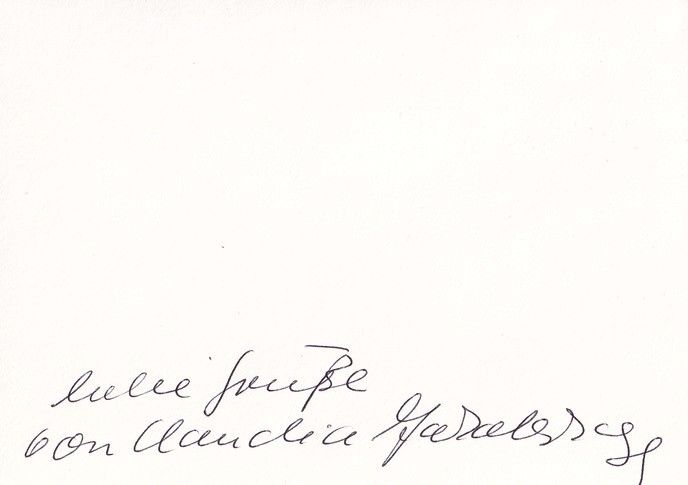 liebe Grüße
von Claudia